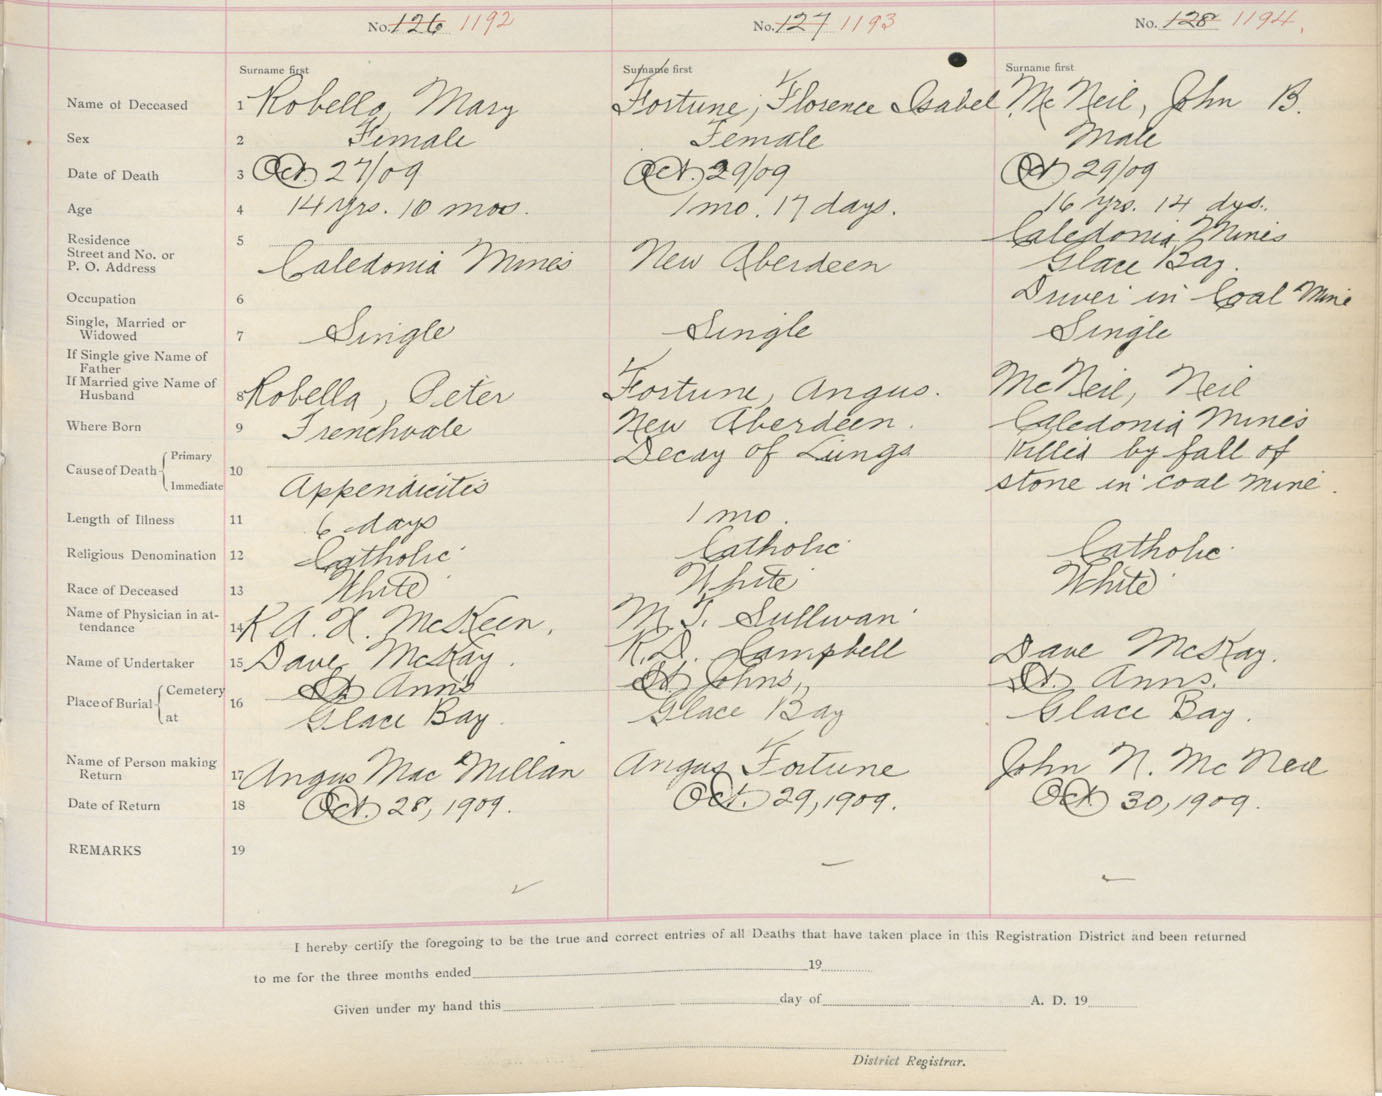 No. 126 1192 No. 127 1193 No. 128 1194.
Surname first Surname first Surname first
Name of Deceased 1 Robella, Mary Fortune, Florence Isabel McNeil, John B.
Sex 2 Female Female Male
Date of Death 3 Oct. 27/09 Oct. 29/09 Oct 29/09
Age 4 14 yrs. 10 mos. 1 mo. 17 days. 16 yrs. 14 dys.
Residence
Street and No. or
P. O. Address 5 Caledonia Mines New Aberdeen Caledonia Mines
Glace Bay.
Occupation 6 Driver in Coal Mine
Single, Married or
Widowed 7 Single Single Single
If Single give Name of
Father
If Married give Name of
Husband 8 Robella, Peter Fortune, Angus. McNeil, Neil
Where Born 9 Frenchvale New Aberdeen. Caledonia Mines
Cause of Death Primary 10 Decay of Lungs Killed by fall of
Immediate Appendicitis stone in coal mine.
Length of Illness 11 6 days 1 mo.
Religious Denomination 12 Catholic Catholic Catholic
Race of Deceased 13 White White White
Name of Physician in at-
tendance 14 K A. H. McKeen. M. T. Sullivan
Name of Undertaker 15 Dave McKay. K. D. Campbell Dave McKay.
Place of Burial Cemetery 16 St. Anns St. Johns, St. Anns.
at Glace Bay. Glace Bay Glace Bay.
Name of Person making
Return 17 Angus MacMillan Angus Fortune John N. McNeil
Date of Return 18 Oct. 28, 1909. Oct. 29, 1909. Oct. 30, 1909.
REMARKS 19
I hereby certify the foregoing to be the true and correct entries of all Deaths that have taken place in this Registration District and been returned
to me for the three months ended 19
Given under my hand this day of A. D. 19
District Registrar.